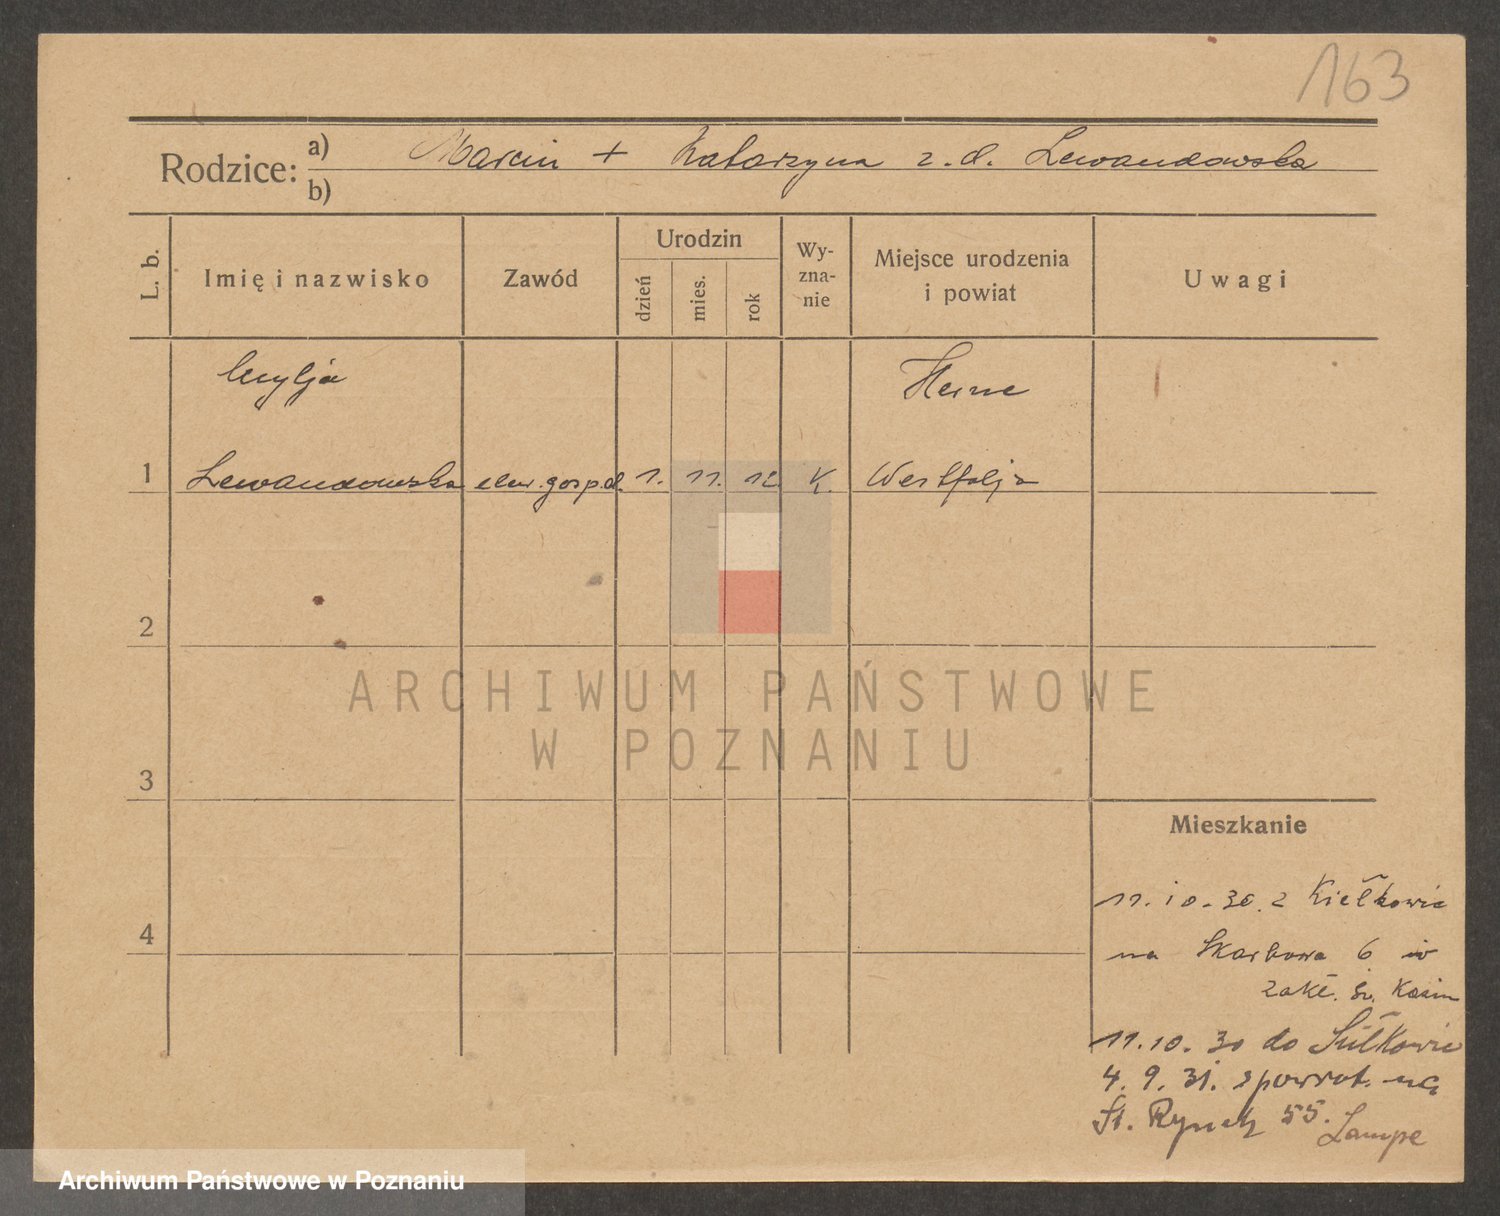 163
Rodzice: a) Marcin + Katarzyna z. d. Lewandowska
b)
L. b.
Imię i nazwisko
Zawód
Urodzin
dzień
mies.
rok
Wy-
zna-
nie
Miejsce urodzenia
i powiat
Uwagi
Herne
1 Lewandowska elew. gosp. d. 1. 11. 12 K. Westfalja
2
3
4
ARCHIWUM PAŃSTWOWE
W POZNANIU
Mieszkanie
11. 10. 30. z
na Skarbowa 6 w
zakł. św. Kazim
11. 10. 30 do
4. 9. 31. spowrot. na
St. Rynek 55. Lampe
Archiwum Państwowe w Poznaniu